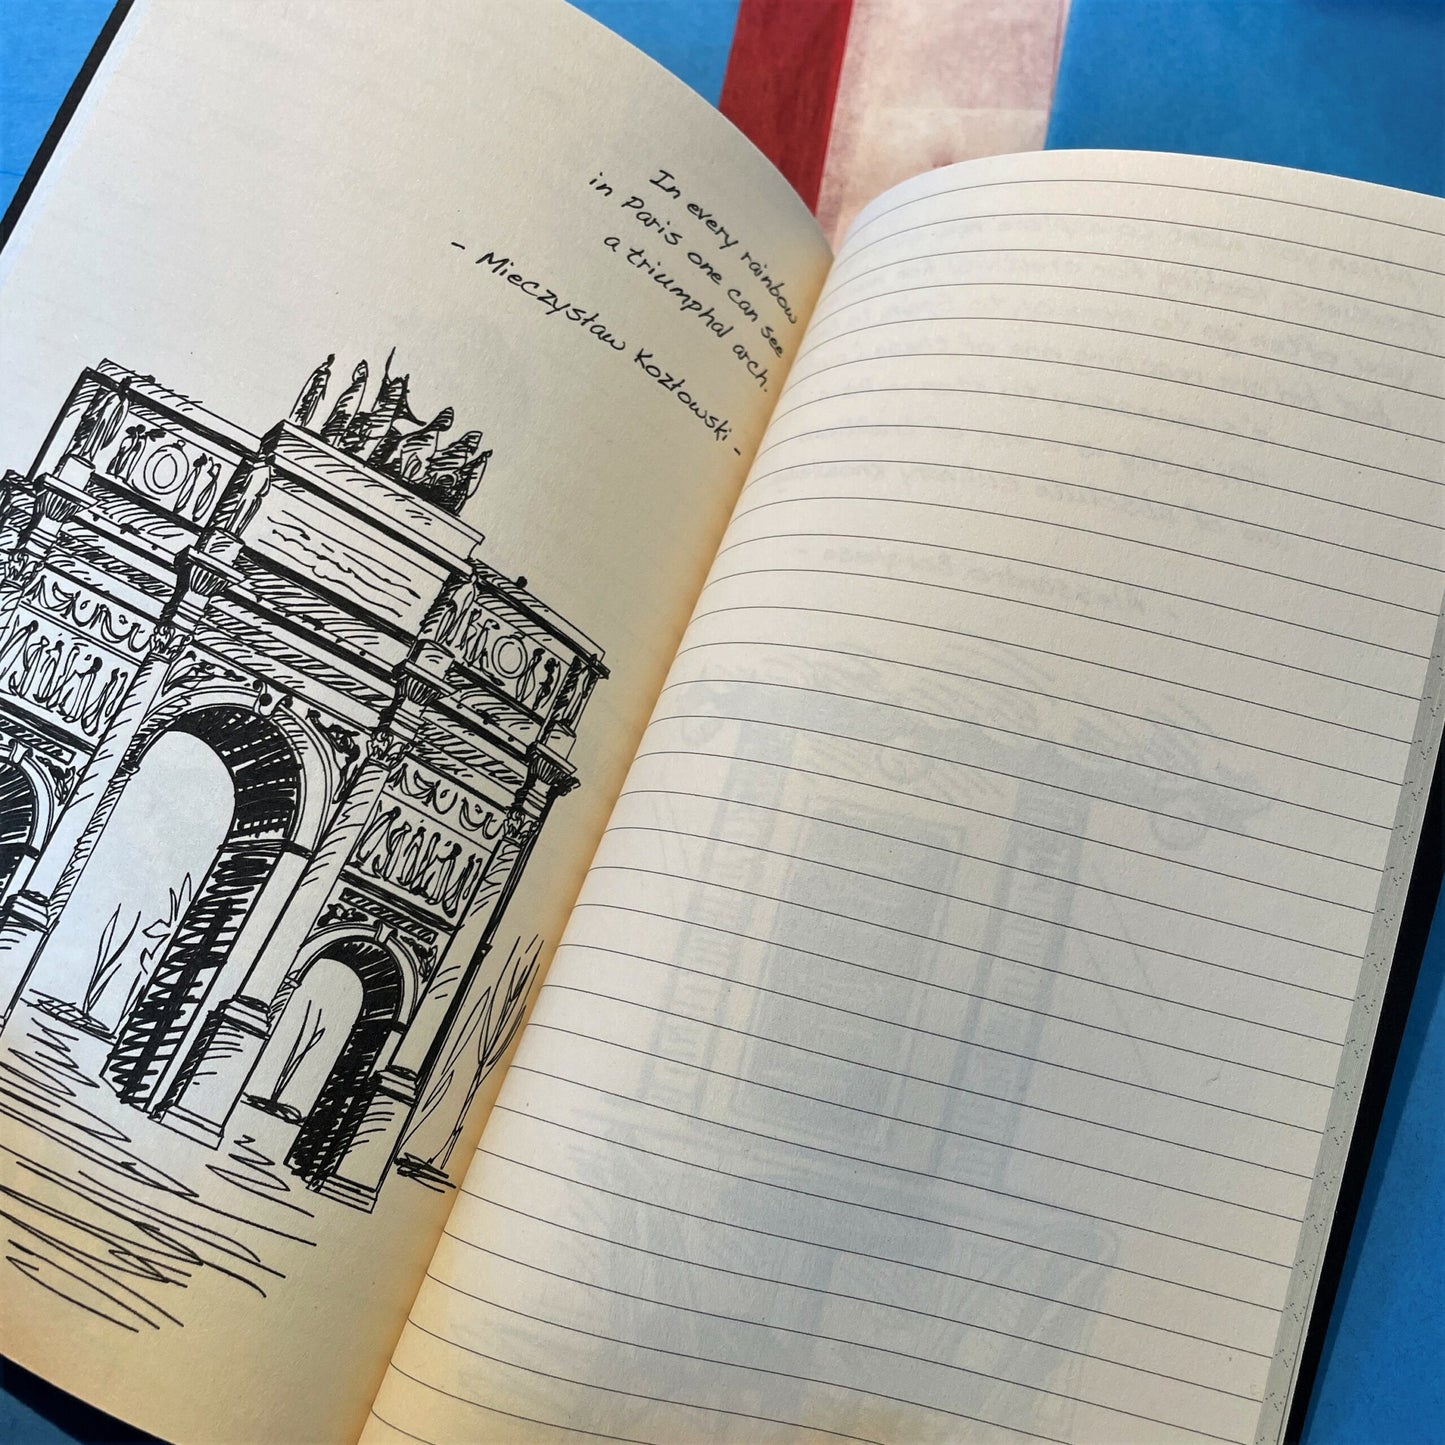 In every rainbow
in Paris one can see
a triumphal arch.
- Mieczysław Kozłowski -